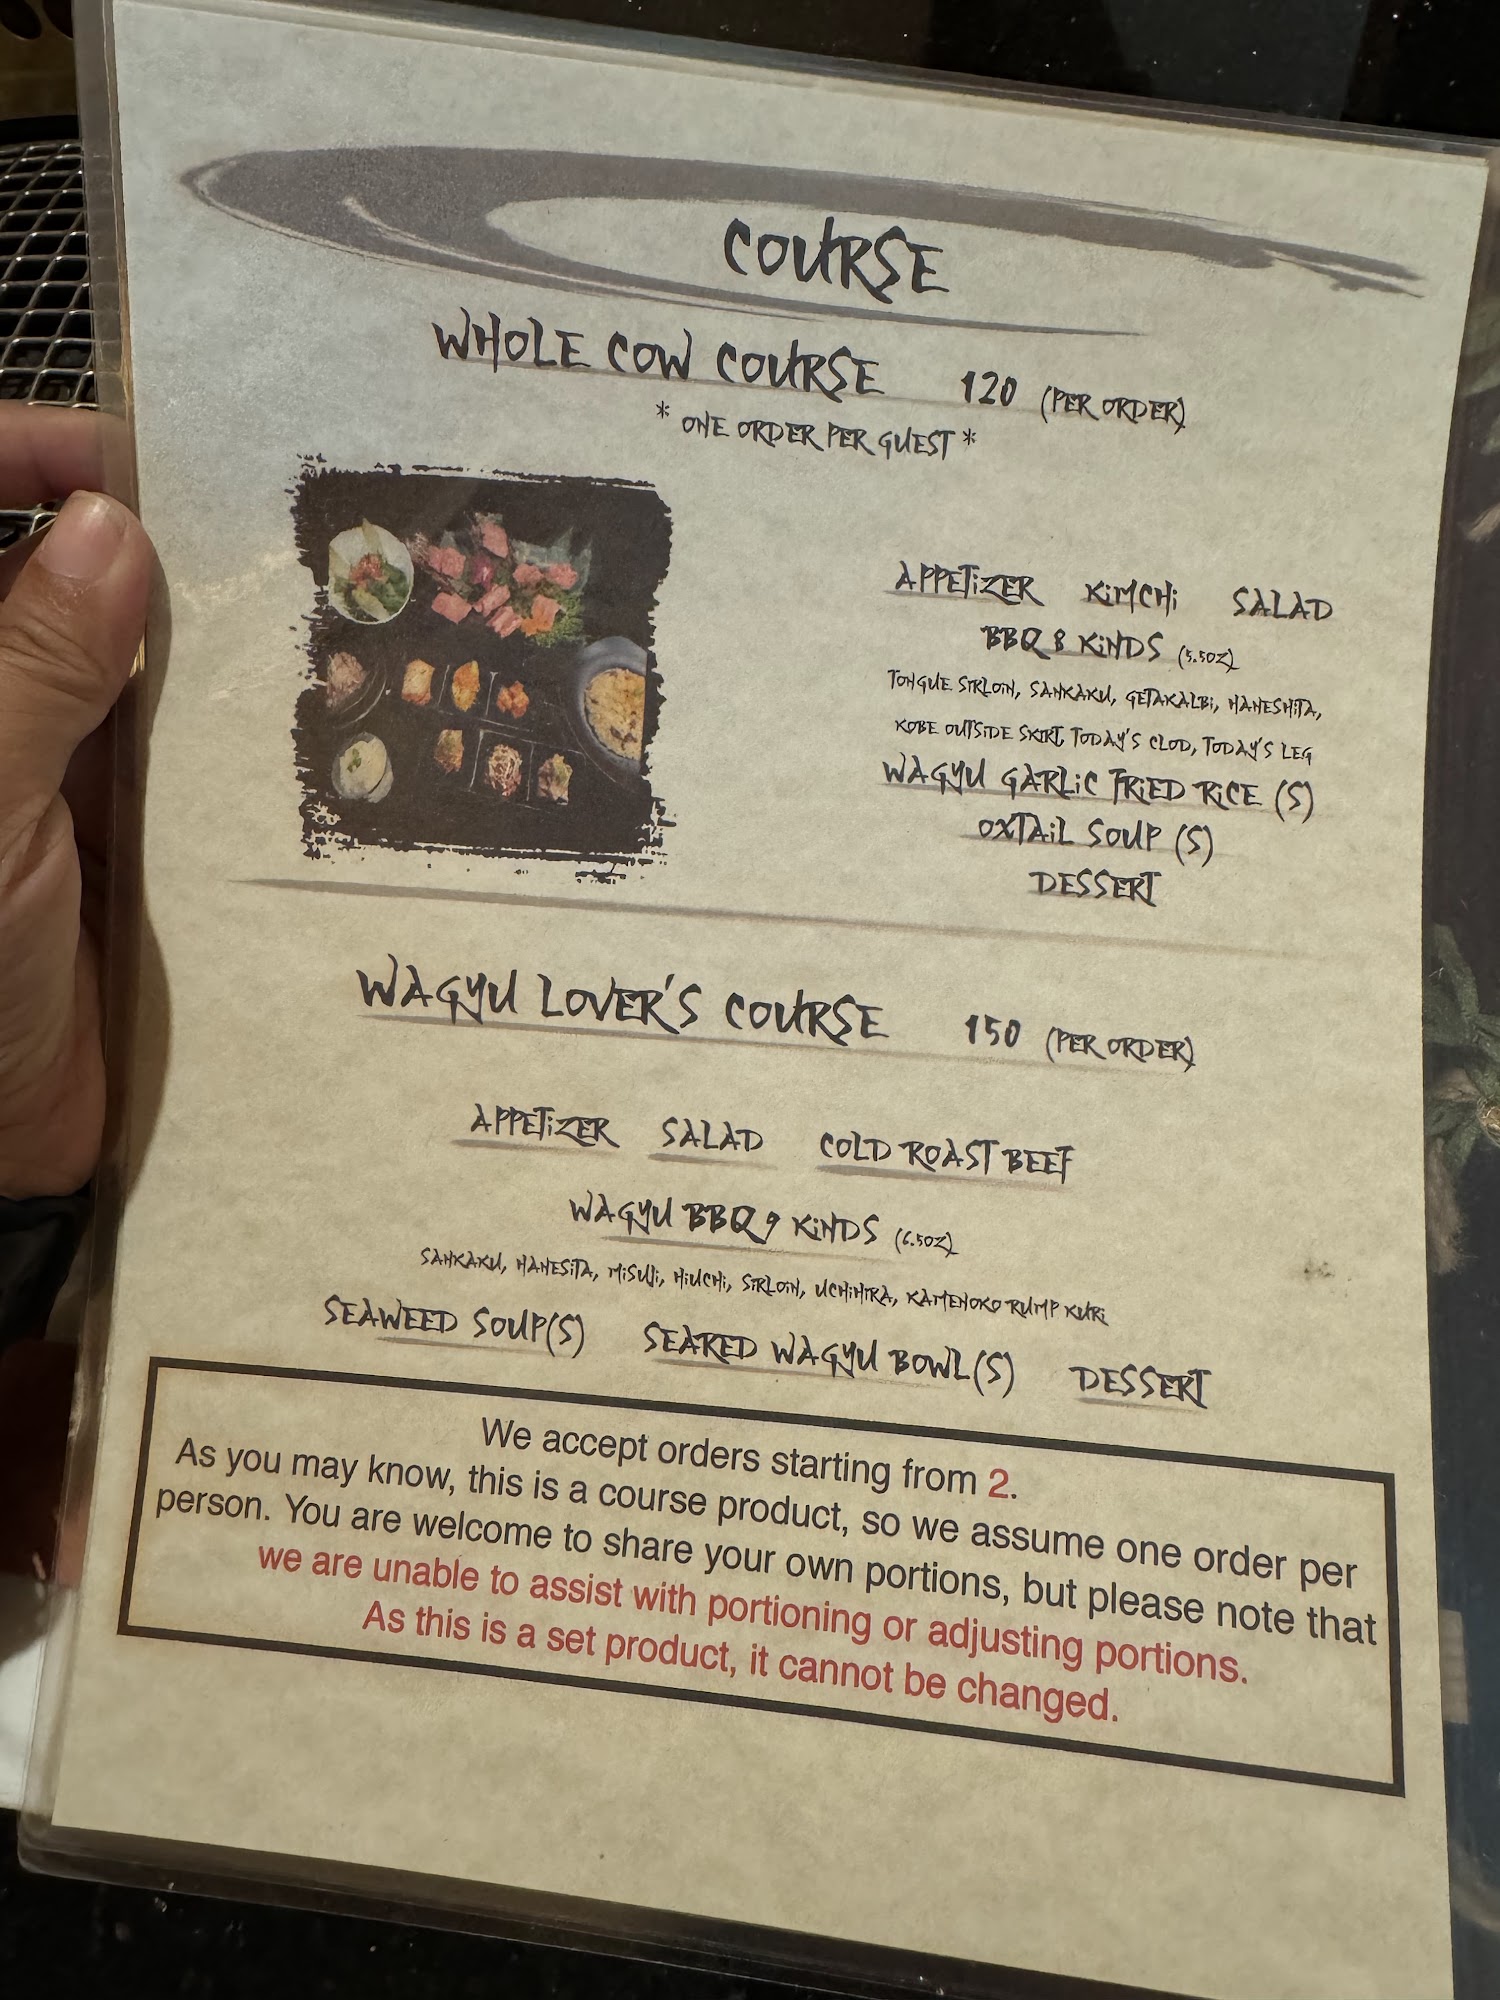 COURSE
WHOLE COW COURSE 120 (PER ORDER)
* ONE ORDER PER GUEST *
APPETIZER KIMCHI SALAD
BBQ 8 KINDS (5.5OZ)
TONGUE SIRLOIN, SANKAKU, GETAKALBI, HANESHITA,
KOBE OUTSIDE SKIRT, TODAY'S CLOD, TODAY'S LEG
WAGYU GARLIC FRIED RICE (S)
OXTAIL SOUP (S)
DESSERT
WAGYU LOVER'S COURSE 150 (PER ORDER)
APPETIZER SALAD COLD ROAST BEEF
WAGYU BBQ 9 KINDS (6.5OZ)
SANKAKU, HANESITA, MISUJI, HIUCHI, SIRLOIN, UCHIHIRA, KAMENOKO RUMP KURI
SEAWEED SOUP(S) SEARED WAGYU BOWL(S) DESSERT
We accept orders starting from 2.
As you may know, this is a course product, so we assume one order per
person. You are welcome to share your own portions, but please note that
we are unable to assist with portioning or adjusting portions.
As this is a set product, it cannot be changed.